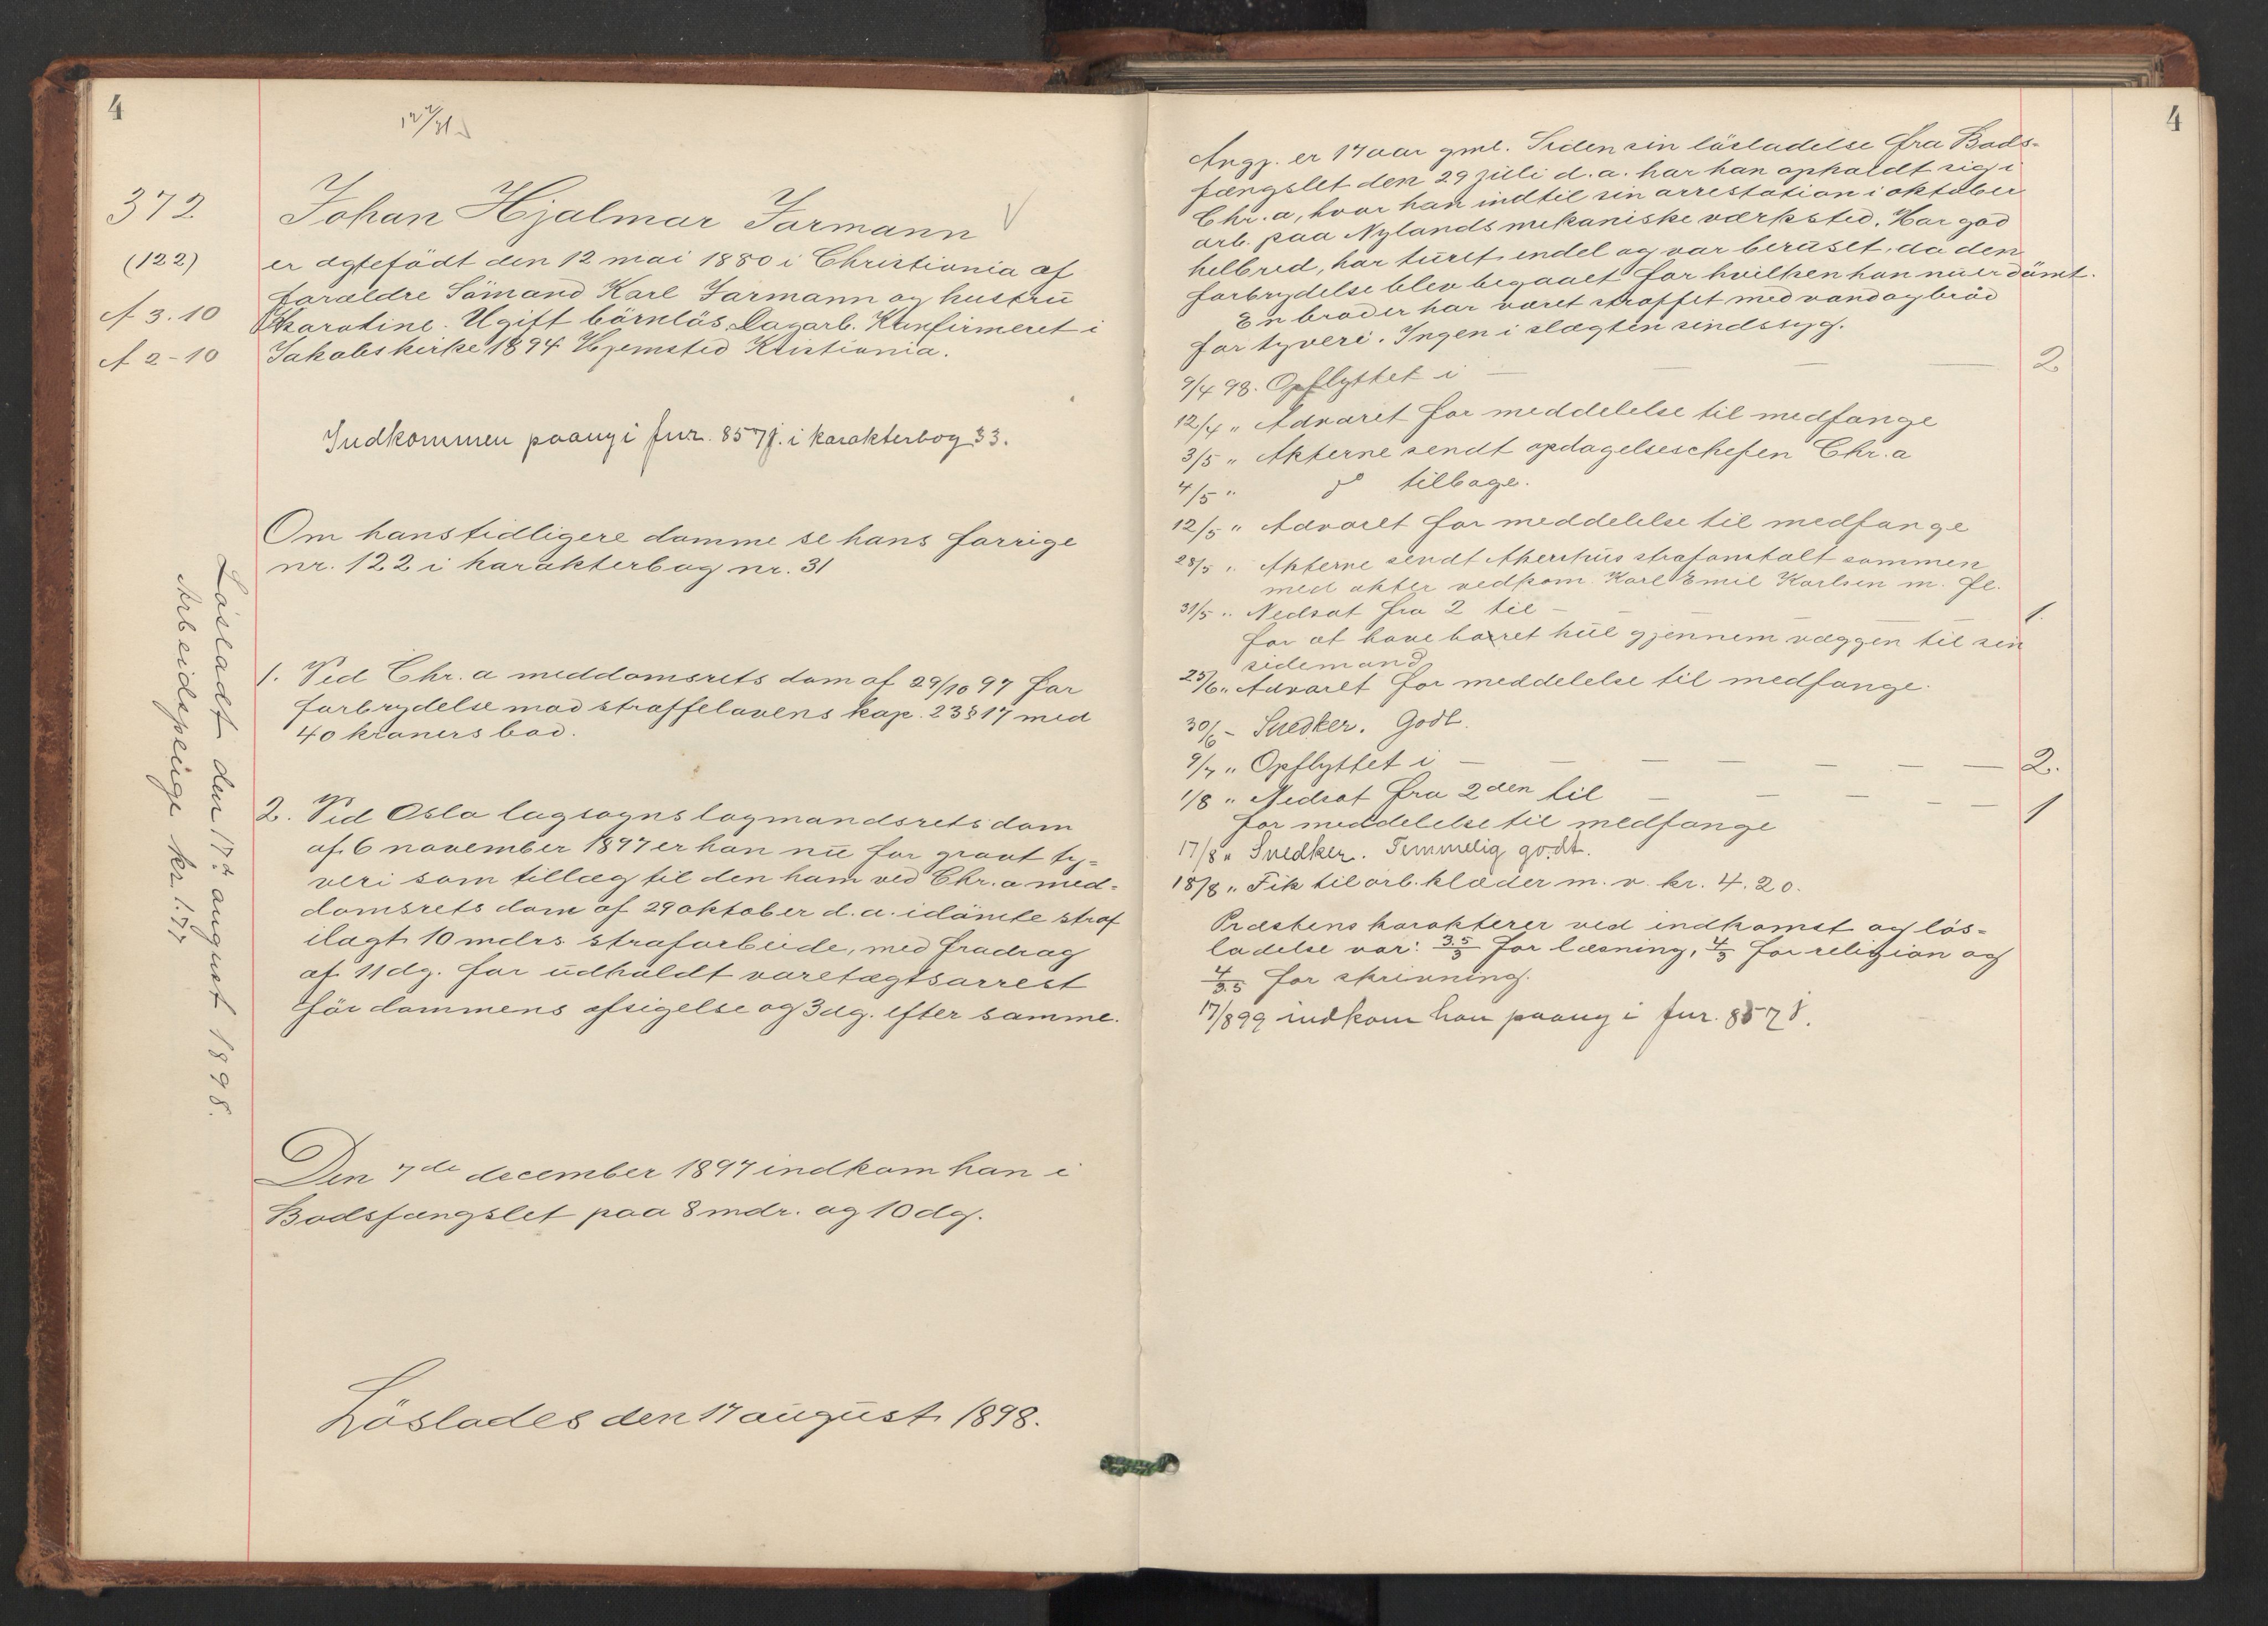 4
122/31
372
(122)
A 3.10
A 2-10
Johan Hjalmar Jarmann
er ægtefödt den 12 mai 1880 i Christiania af
forældre Sömand Karl Jarmann og hustru
Karoline. Ugift börnlös Løsarb. Konfirmeret i
Jakobs kirke 1894 Hjemsted Kristiania.
Indkommen paany i fnr. 857 j. i karakterbog 33.
Om hans tidligere domme se hans forrige
nr. 122 i karakterbog nr. 31
1. Ved Chr.a meddomsrets dom af 29/10 97 for
forbrydelse mod straffelovens kap. 23 § 17 med
40 kroners bod.
2. Ved Oslo lagsogns lagmandsrets dom
af 6 november 1897 er han nu for grovt ty=
veri som tillæg til den ham ved Chr.a med=
domsrets dom af 29 oktober d.a. idömte straf
ilagt 10 mdrs strafarbeide, med fradrag
af 11 dg. for udholdt varetægtsarrest
för dommens afsigelse og 3 dg. efter samme.
Den 7de december 1897 indkom han i
Bodsfængslet paa 8 mdr. og 10 dg.
Löslades den 17 august 1898.
Lösladt den 17de august 1898.
Arbeidspenge kr. 1.77
4
Angj. er 17 aar gml. Siden sin lösladelse fra Bods-
fængslet den 29 juli d.a. har han opholdt sig i
Chr.a, hvor han indtil sin arrestation i oktober
arb. paa Nylands mekaniske værksted. Har god
helbred, har turet endel og var beruset, da den
forbrydelse blev begaaet for hvilken han nu er dömt.
En broder har været straffet med vand og bröd
for tyveri. Ingen i slægten sindssyg.
9/4 98. Opflyttet i — — — — 2
12/4 " Advaret for meddelelse til medfange
3/5 " Akterne sendt opdagelseschefen Chr.a
4/5 " do tilbage.
12/5 " Advaret for meddelelse til medfange
28/5 " Akterne sendt Akershus strafanstalt sammen
med akter vedkom. Karl Emil Karlsen m. fl.
31/5 " Nedsat fra 2 til — — — — 1.
for at have borret hul gjennem væggen til sin
sidemand
25/6 " Advaret for meddelelse til medfange.
30/6 - Snedker. Godt.
9/7 " Opflyttet i — — — — — — — 2.
1/8 " Nedsat fra 2den til — — — — — 1
for meddelelse til medfange
17/8 " Snedker. Temmelig godt.
18/8 " Fik til arb. klæder m. v. kr. 4.20.
Præstens karakterer ved indkomst og lös=
ladelse var: 3.5/3 for læsning, 4/3 for religion og
4/3.5 for skrivning.
17/8 99 indkom han paany i fnr. 857 j.